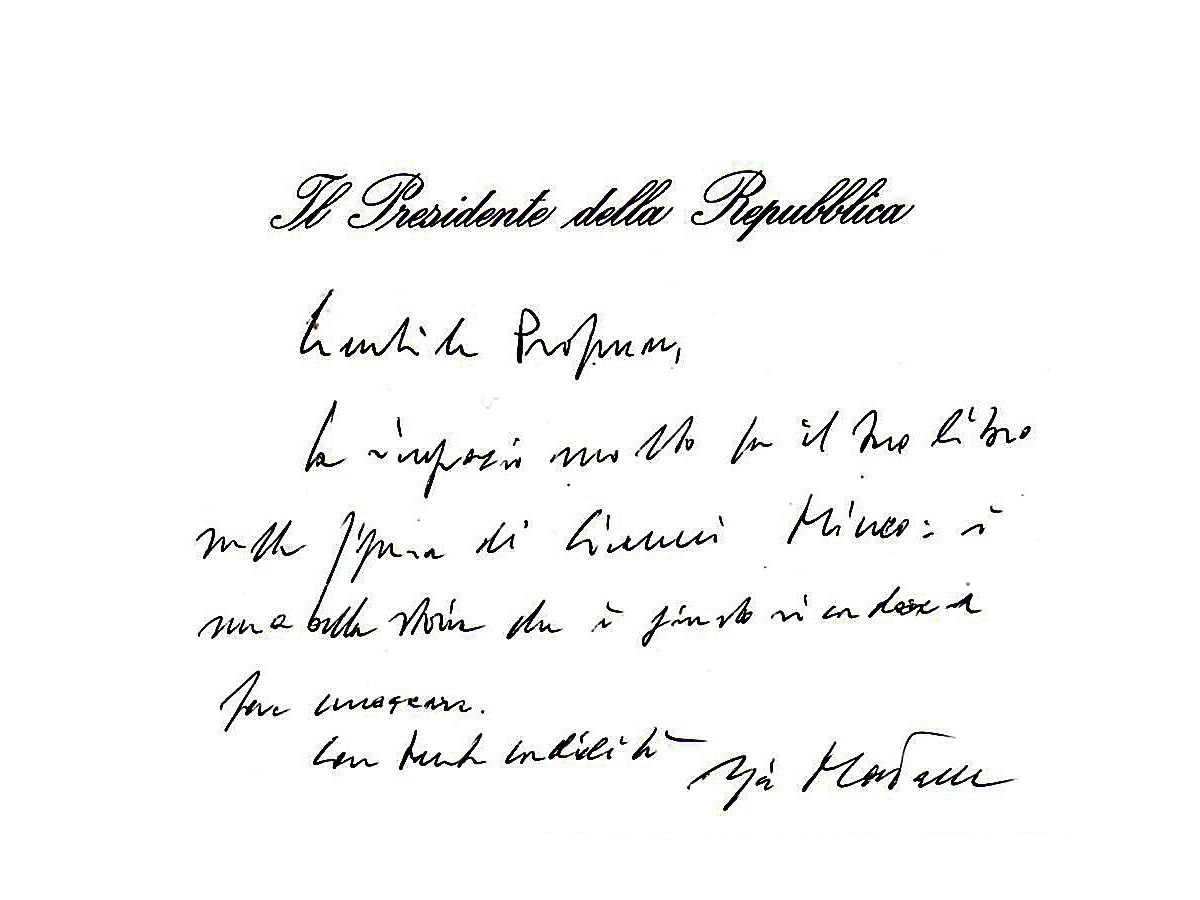 Il Presidente della Repubblica
Gentile Professore,
La ringrazio molto per il Suo libro
sulla figura di Gianni Mineo: è
una bella storia che è giusto ricordare e
far conoscere.
Con tanta cordialità
Mattarella